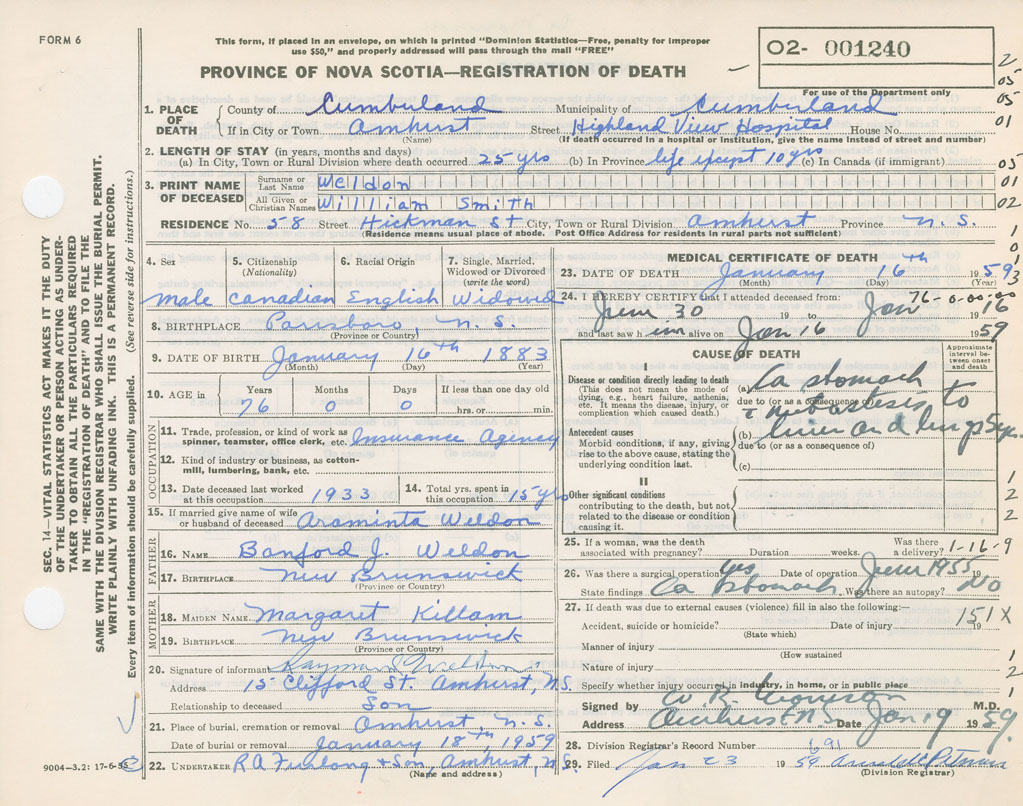 FORM 6
This form, if placed in an envelope, on which is printed "Dominion Statistics—Free, penalty for improper
use $50," and properly addressed will pass through the mail "FREE"
O2- 001240
For use of the Department only
PROVINCE OF NOVA SCOTIA—REGISTRATION OF DEATH
1. PLACE OF DEATH County of Cumberland Municipality of Cumberland
If in City or Town Amherst Street Highland View Hospital House No.
(Name) (If death occurred in a hospital or institution, give the name instead of street and number)
2. LENGTH OF STAY (in years, months and days)
(a) In City, Town or Rural Division where death occurred 25 yrs (b) In Province life except 10 yrs (c) In Canada (if immigrant)
3. PRINT NAME OF DECEASED Surname or Last Name Weldon
All Given or Christian Names William Smith
RESIDENCE No. 58 Street Hickman St City, Town or Rural Division Amherst Province N.S.
(Residence means usual place of abode. Post Office Address for residents in rural parts not sufficient)
4. Sex 5. Citizenship (Nationality) 6. Racial Origin 7. Single, Married, Widowed or Divorced (write the word)
Male Canadian English Widowed
8. BIRTHPLACE Parrsboro, N.S.
(Province or Country)
9. DATE OF BIRTH January 16th 1883
(Month) (Day) (Year)
10. AGE in Years Months Days If less than one day old
76 0 0 hrs. or min.
OCCUPATION
11. Trade, profession, or kind of work as spinner, teamster, office clerk, etc. Insurance Agency
12. Kind of industry or business, as cotton-mill, lumbering, bank, etc.
13. Date deceased last worked at this occupation 1933 14. Total yrs. spent in this occupation 15 yrs
15. If married give name of wife or husband of deceased Araminta Weldon
FATHER
16. NAME Banford J. Weldon
17. BIRTHPLACE New Brunswick
(Province or Country)
MOTHER
18. MAIDEN NAME Margaret Killam
19. BIRTHPLACE New Brunswick
(Province or Country)
20. Signature of informant Raymond Weldon
Address 15 Clifford St. Amherst, N.S.
Relationship to deceased Son
21. Place of burial, cremation or removal Amherst, N.S.
Date of burial or removal January 18th, 1959
22. UNDERTAKER R A Furlong & Son, Amherst, N.S.
(Name and address)
9004—3.2: 17-6-
MEDICAL CERTIFICATE OF DEATH
23. DATE OF DEATH January 16th 1959
(Month) (Day)
76-0-00-00
24. I HEREBY CERTIFY that I attended deceased from:
June 30 19 to Jan 16 19
and last saw him alive on Jan 16 1959
CAUSE OF DEATH
Approximate interval between onset and death
I
Disease or condition directly leading to death
(This does not mean the mode of dying, e.g., heart failure, asthenia, etc. It means the disease, injury, or complication which caused death.)
(a) Ca stomach
due to (or as a consequence of)
metastesis to
Antecedent causes
Morbid conditions, if any, giving rise to the above cause, stating the underlying condition last.
(b) liver and lungs
due to (or as a consequence of)
(c)
II
Other significant conditions contributing to the death, but not related to the disease or condition causing it.
25. If a woman, was the death associated with pregnancy? Duration weeks. Was there a delivery?
1-16-9
26. Was there a surgical operation? Yes Date of operation June 1955 19
State findings Ca Stomach Was there an autopsy? No
27. If death was due to external causes (violence) fill in also the following:—
Accident, suicide or homicide? Date of injury 19
(State which)
151X
Manner of injury
(How sustained
Nature of injury
Specify whether injury occurred in industry, in home, or in public place
Signed by M.D.
Address Amherst N.S. Date Jan 19 1959.
28. Division Registrar's Record Number 691
29. Filed Jan 23 1959
(Division Registrar)
SEC. 14—VITAL STATISTICS ACT MAKES IT THE DUTY
OF THE UNDERTAKER OR PERSON ACTING AS UNDER-
TAKER TO OBTAIN ALL THE PARTICULARS REQUIRED
IN THE "REGISTRATION OF DEATH" AND FILE THE
SAME WITH THE DIVISION REGISTRAR WHO SHALL ISSUE THE BURIAL PERMIT.
WRITE PLAINLY WITH UNFADING INK. THIS IS A PERMANENT RECORD.
Every item of information should be carefully supplied. (See reverse side for instructions.)
2
05
05
01
05
01
02
1
0
1
3
1
2
2
1
2
1